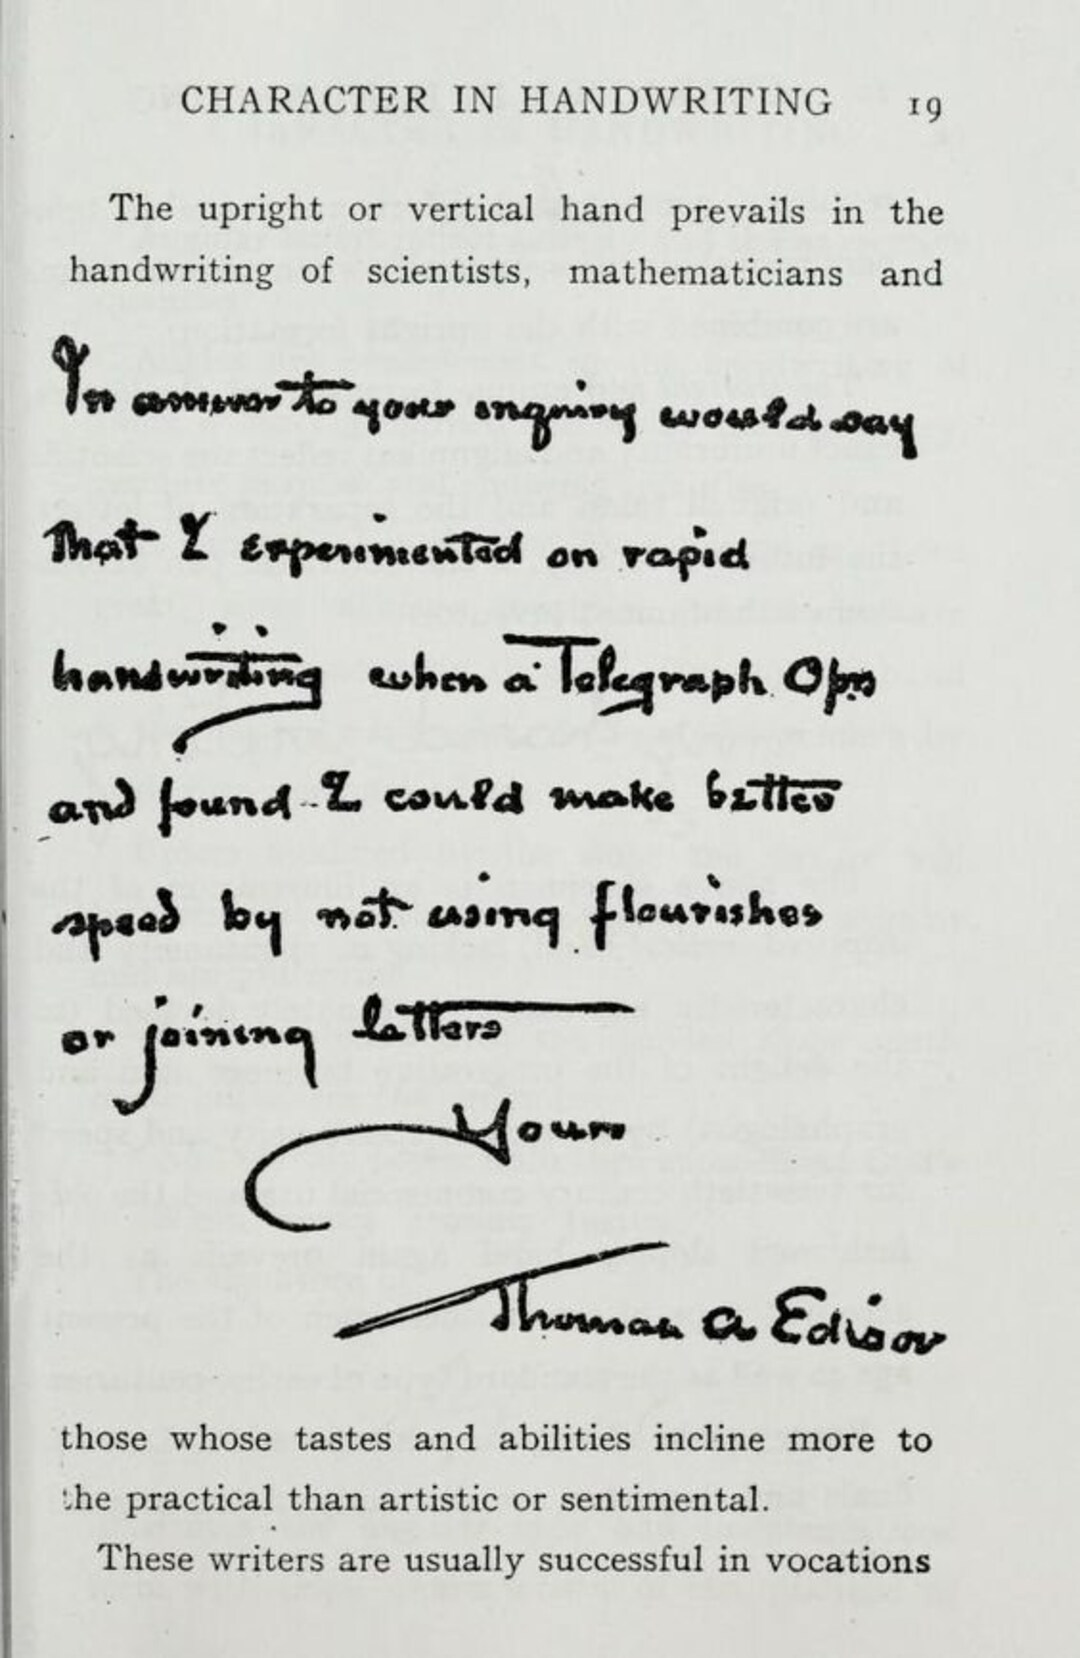 CHARACTER IN HANDWRITING 19
The upright or vertical hand prevails in the
handwriting of scientists, mathematicians and
In answer to your enquiry would say
that I experimented on rapid
handwriting when a Telegraph Opr
and found I could make better
speed by not using flourishes
or joining letters
Yours
Thomas A Edison
those whose tastes and abilities incline more to
the practical than artistic or sentimental.
These writers are usually successful in vocations